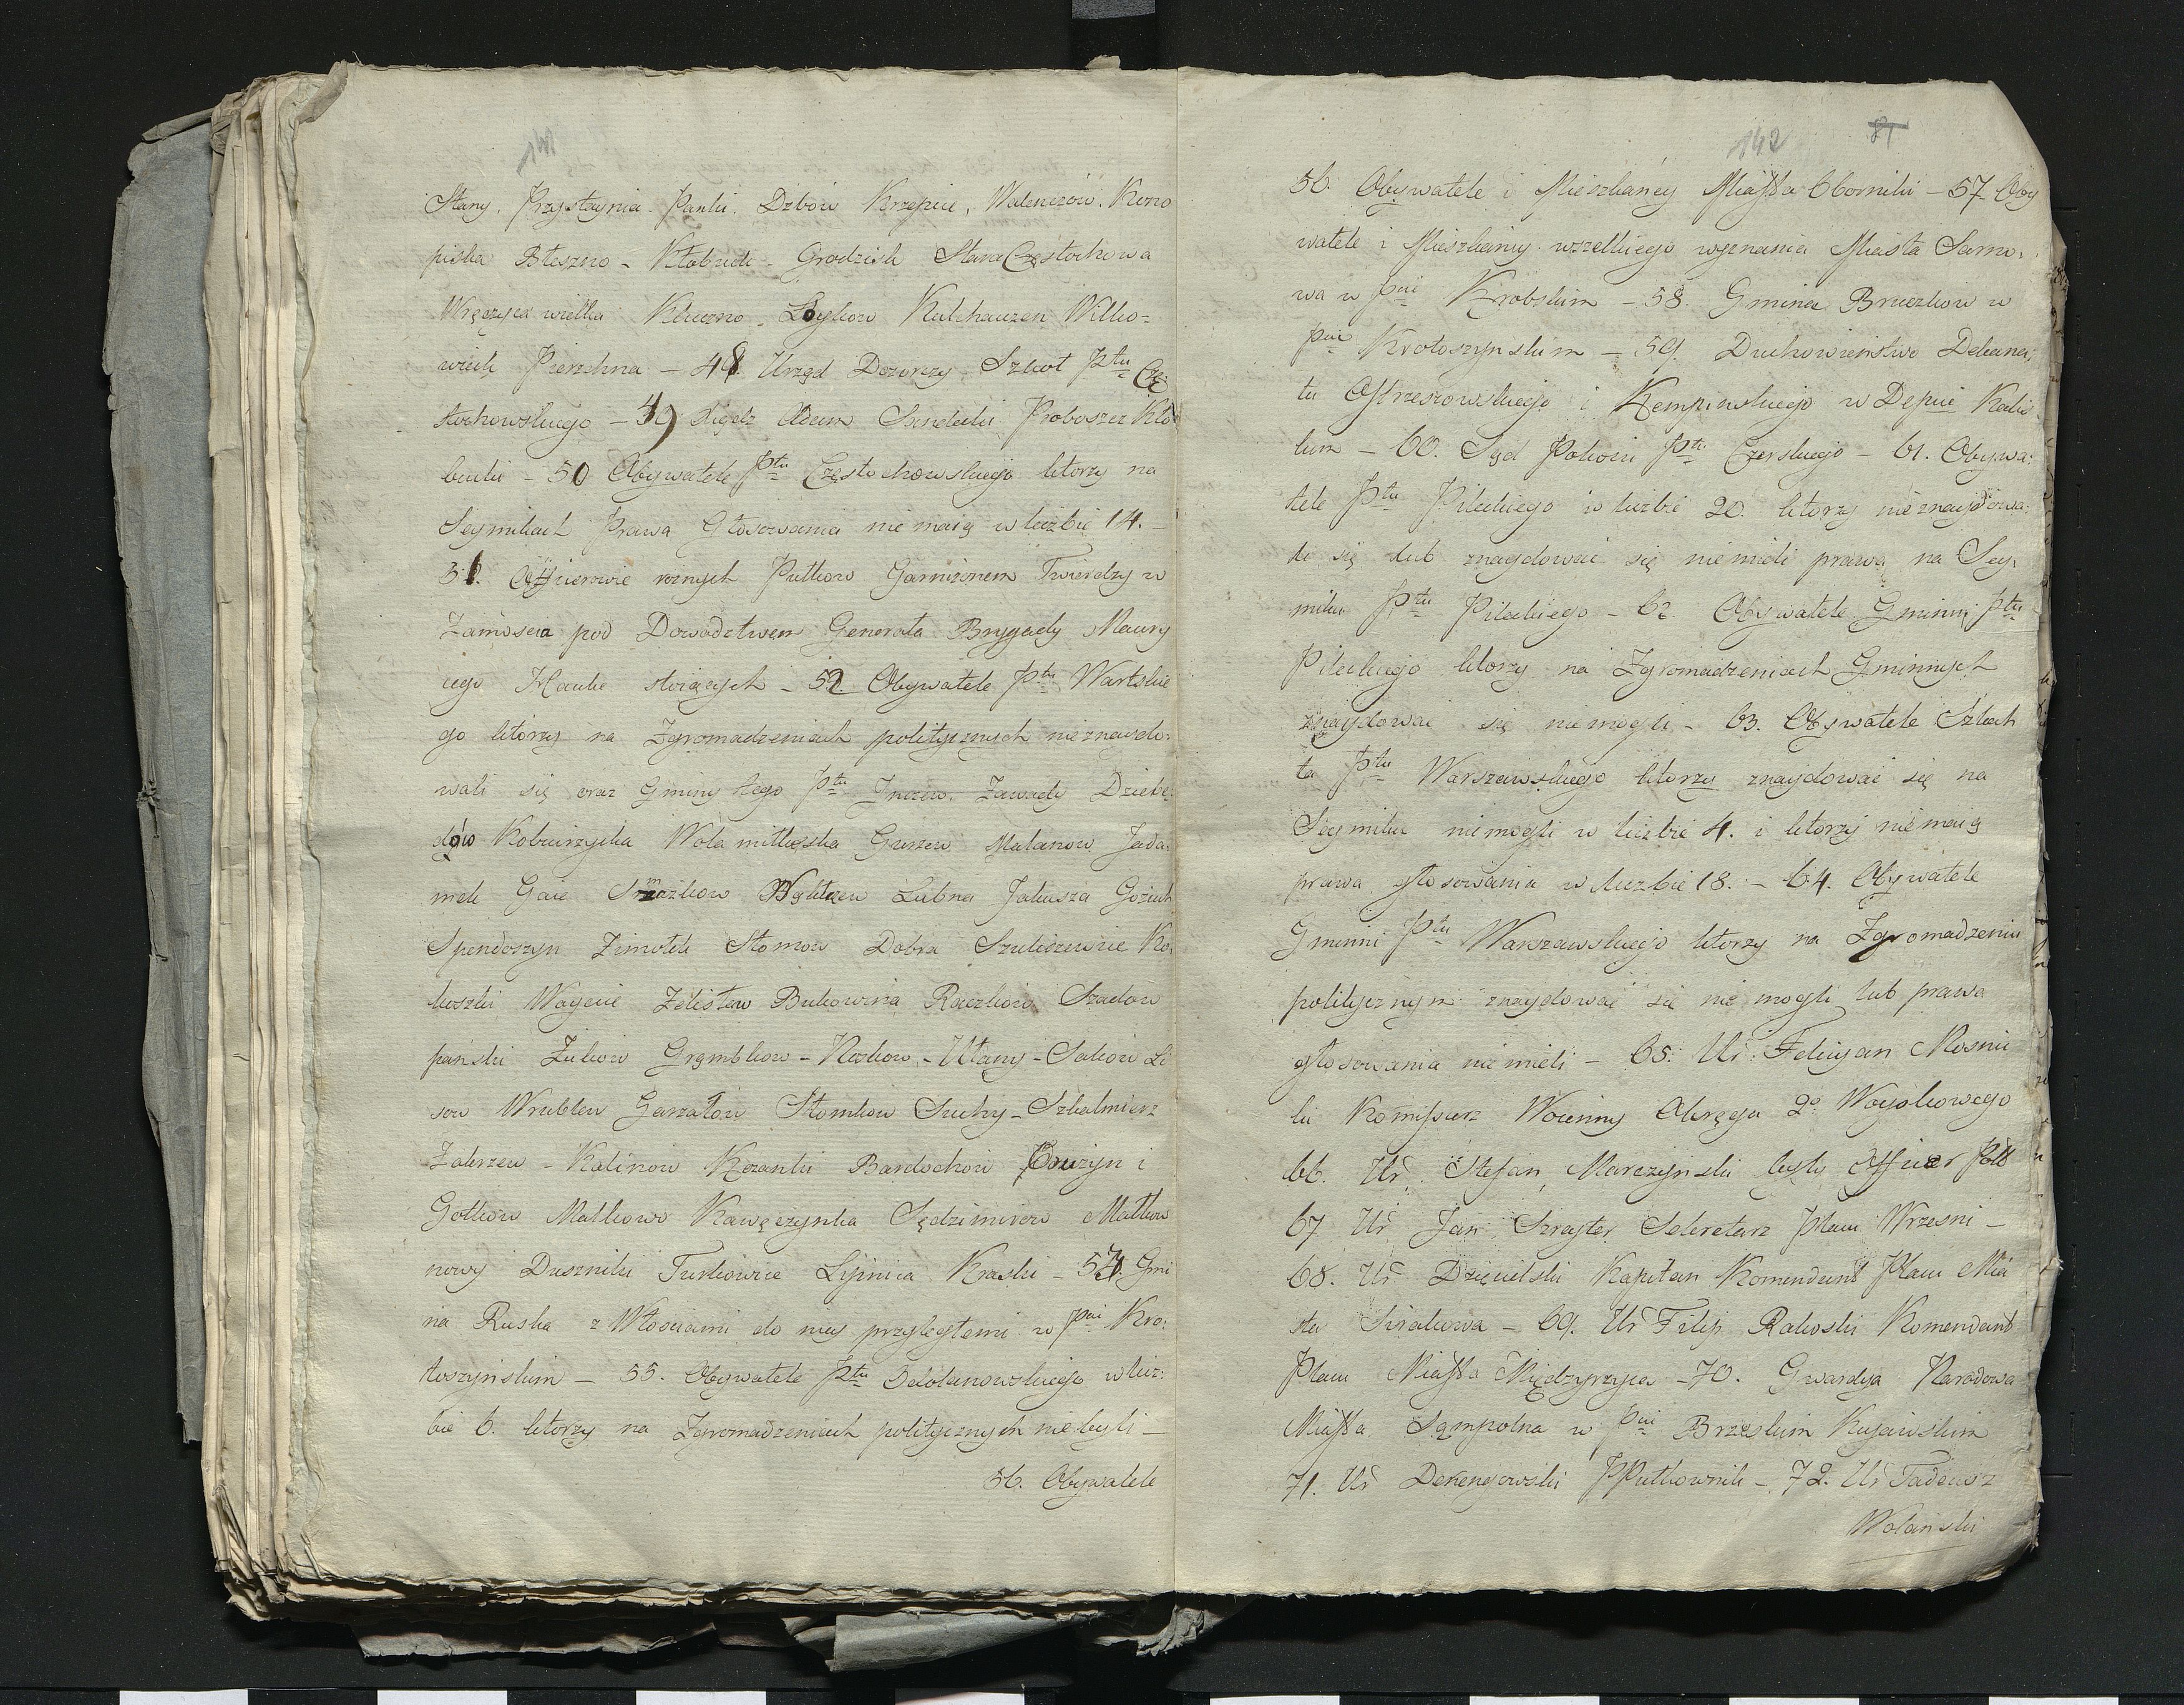 141
Stany. Przystaynia. Panki. Dzbów Krzepice, Walenczów. Kono
piska Błeszno - Kłobuck - Grodzisk Stara Częstochowa
Wręczyca wielka Kluczno - Łoykow Kulehauzen Wilko=
wieck Pierzchna - 48. Urząd Dozorczy Szkoł Ptu Czę
stochowskiego - 49 Xiądz Adam Sandecki Proboszcz Kło
bucki - 50 Obywatele Ptu Częstochowskiego ktorzy na
Seymikach Prawa Głosowania nie maią w liczbie 14. -
51. Officierowie roznych Pułkow Garnizonem Twierdzy w
Zamoscia pod Dowodztwem Generała Brygady Maury
cego Hauke stoiących - 52 Obywatele Ptu Wartskie
go ktorzy na Zgromadzeniach politycznych nieznaydo:
wali się oraz Gminy tego Ptu Inczew. Zawady Dziebę:
dów Kobierzycka Wola miłkoska Gurzew Malanow Jada:
mek Gaie Smazkow Wglczew Lubna Jakusza Gozich
Spendoszyn Zimotek Słomow Dobra Szuliszewice Ko,
koszki Woycie Zelisław Bukowina Raczkow Szadow
pański Zukow Grąmbkow - Kozkow - Utany - Sakow Li
sow Wrublew Garzałow Słomkow Suchy - Szkalmierz
Zakrzew - Kalinow Kozanki Bardochow Cruszyn i
Gołkow Małkowo Kawęczynka Sędzimirow Małkow
nowy Duszniki Turkowice Lipnica Kraski - 53 Gmi
na Ruska z Włosciami do niey przyległemi w Pcie Kro:
toszynskim - 55. Obywatele Ptu Odolanowskiego w licz:
bie 6. ktorzy na Zgromadzeniach politycznych nie byli -
56. Obywatele
142 81
56. Obywatele i Mieszkańcy Miasta Obornik - 57. Oby
watele i Mieszkańcy wszelkiego wyznania Miasta Sarno.
wa w Pcie Krobskim - 58. Gmina Bruczkow w
Pcie Krotoszynskim - 59. Duchowieństwo Dekana:
tu Ostrzeszowskiego i Kempinskiego w Depcie Kalis
kim - 60. Sąd Pokoiu Ptu Czerskiego - 61. Obywa:
tele Ptu Pileckiego w liczbie 20. ktorzy nie znaydowa:
li się lub znaydować się niemieli prawa na Sey:
miku Ptu Pileckiego - 62. Obywatele Gminni Ptu
Pileckiego ktorzy na Zgromadzeniach Gminnych
znaydować się niemogli - 63. Obywatele Szlach
ta Ptu Warszawskiego ktorzy znaydować się na
Seymiku niemogli w liczbie 4. i ktorzy nie maią
prawa głosowania w liczbie 18. - 64. Obywatele
Gminni Ptu Warszawskiego ktorzy na Zgromadzeniu
politycznym znaydować się nie mogli lub prawa
głosowania nie mieli - 65. Ur. Felicyan Mosnic
ki Komissarz Woienny Okręgu 2o Woyskowego
66. Ur. Stefan Marczynski były Officier Pols
67 Ur Jan Szrayter Sekretarz Placu Wrzesni -
68. Ur Dzięcielski Kapitan Komendant Placu Mia
sta Sierakowa - 69. Ur Filip Rakoski Komendant
Placu Miasta Międzyrzyca - 70. Gwardya Narodowa
Miasta Sąmpolna w Pcie Brzeskim Kujawskim
71. Ur Dezengowski PPułkownik - 72. Ur Tadeusz
Wolański